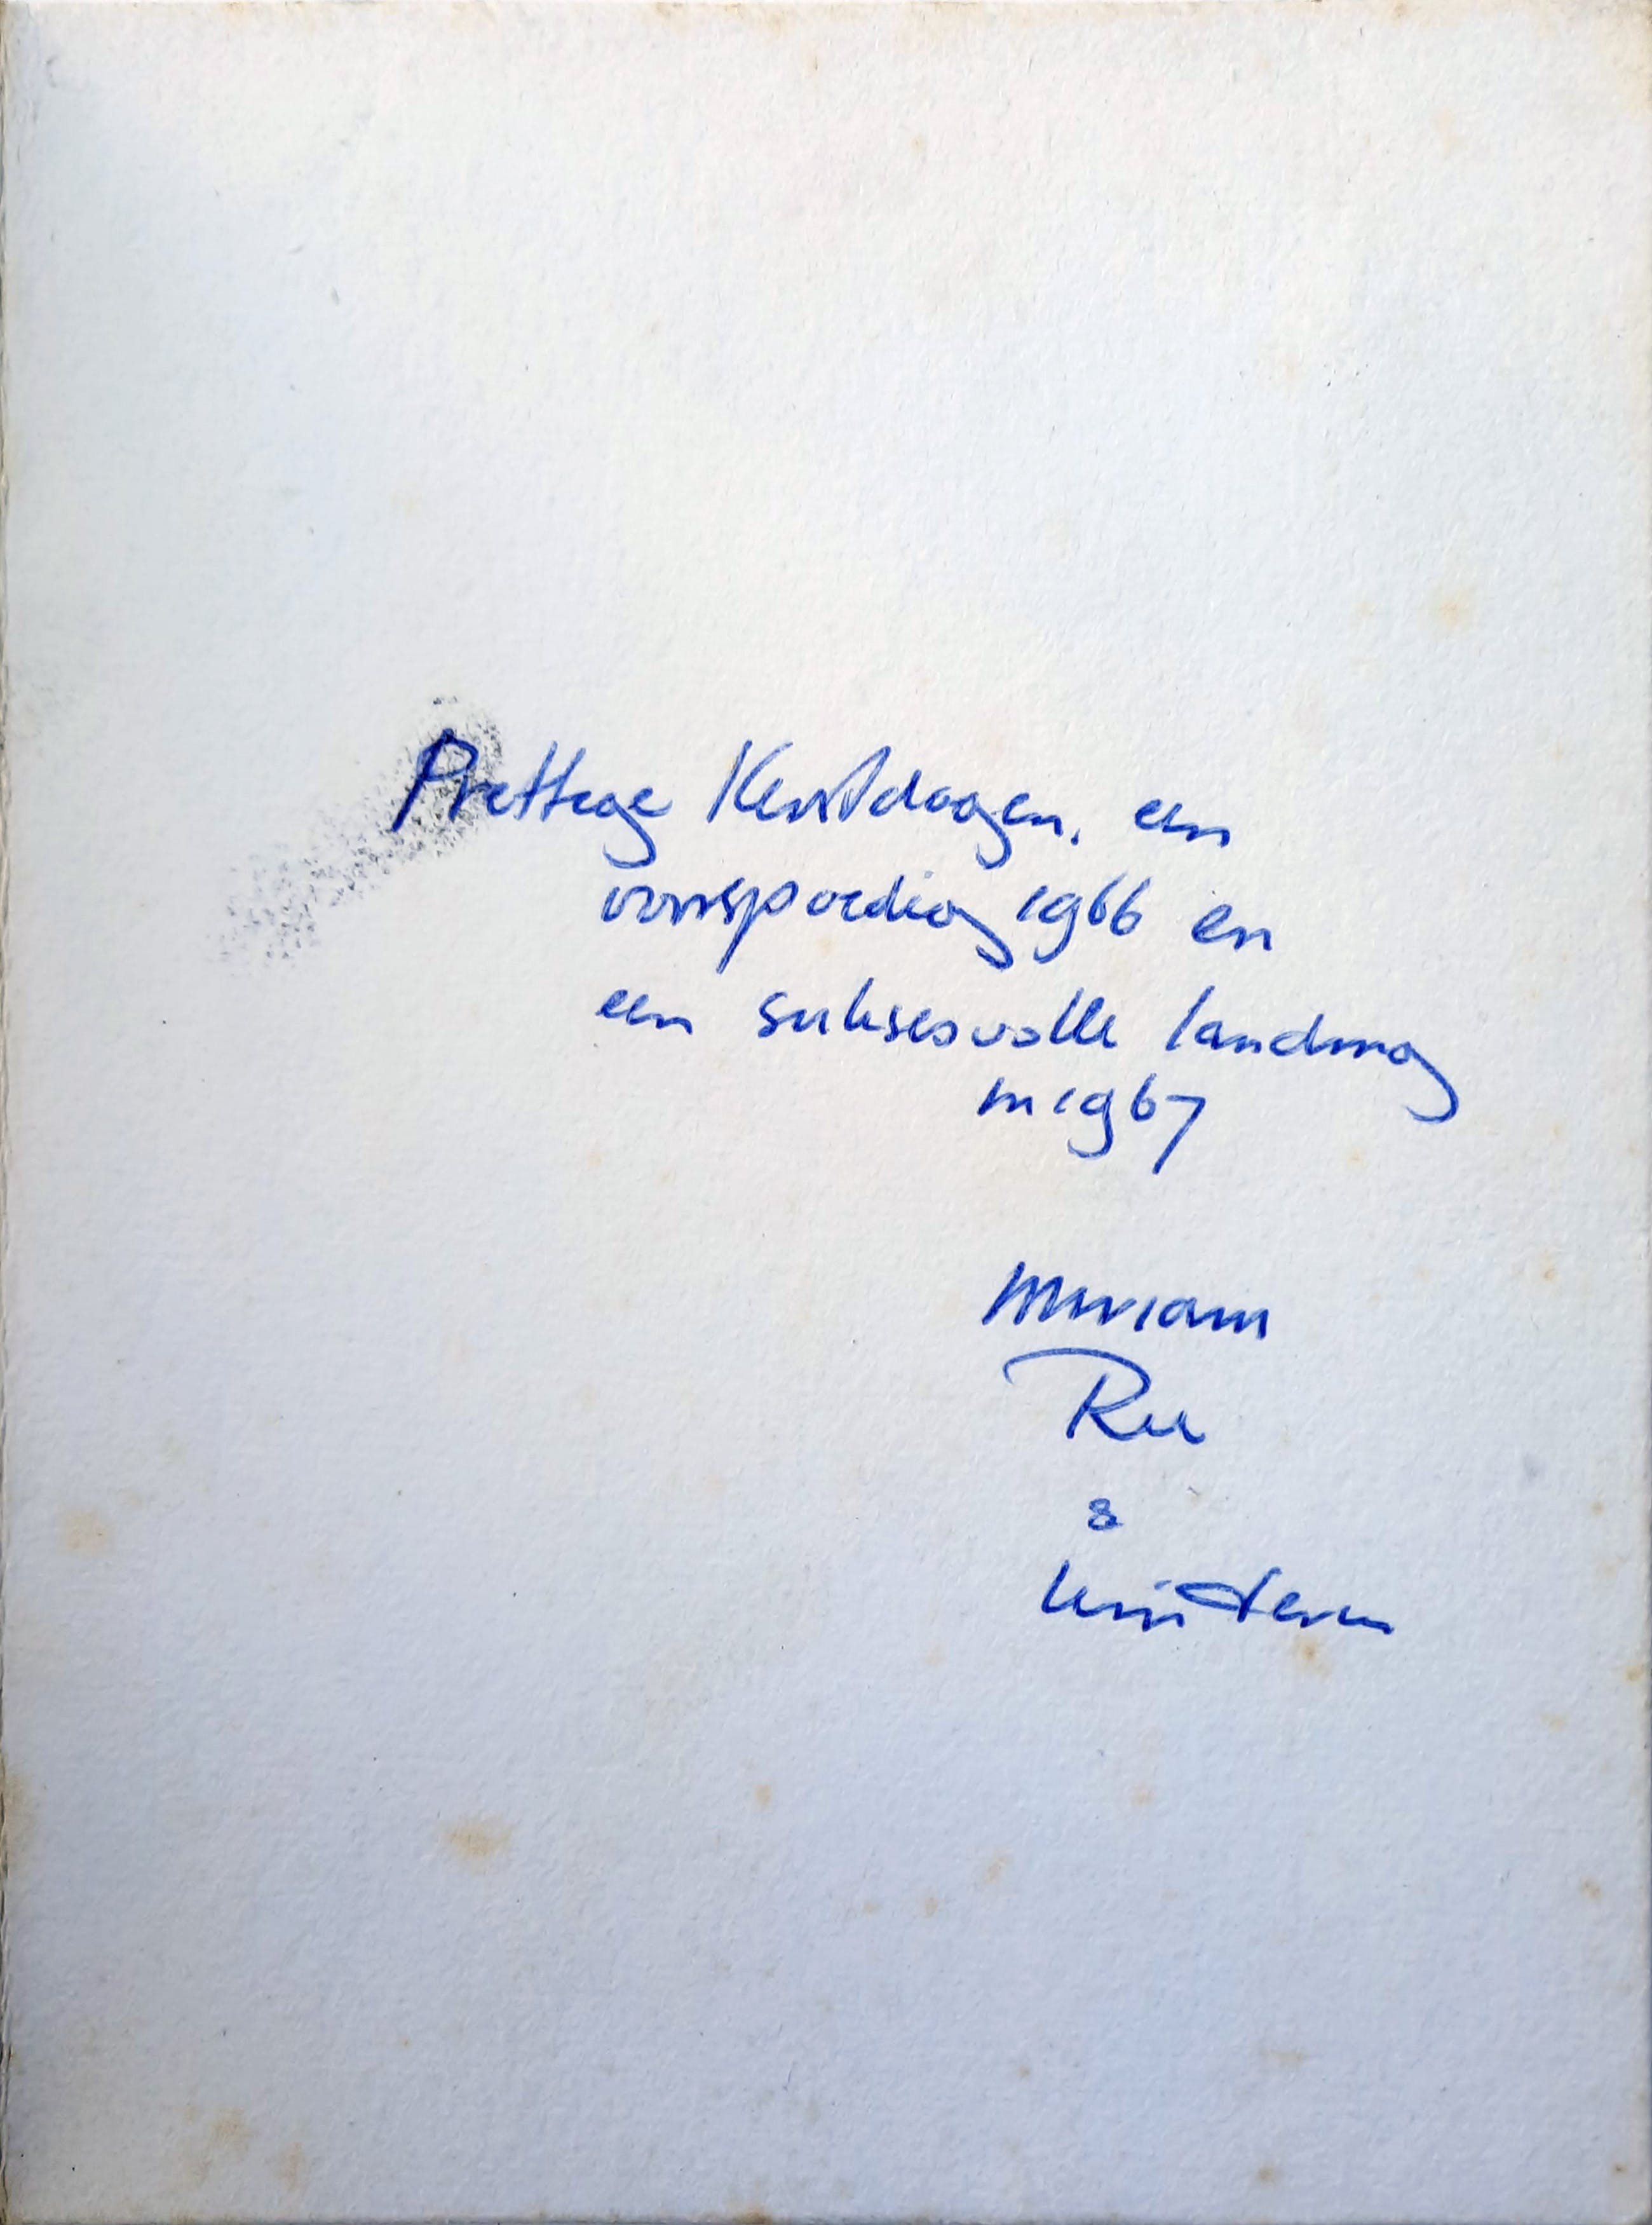 Prettige Kerstdagen, een
voorspoedig 1966 en
een suksesvolle landing
in 1967
Miriam
&
kinderen